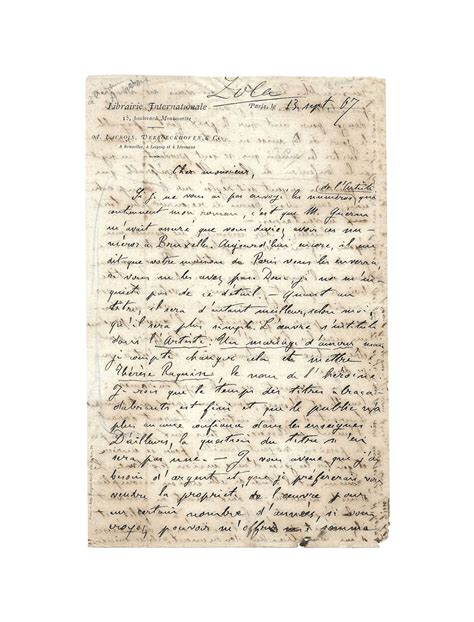 Zola
Librairie Internationale
Paris, le 13 sept 67
15, boulevard Montmartre
A. LACROIX, VERBOECKHOVEN & Cie
A Bruxelles, à Leipzig et à Livourne
Cher monsieur,
(de l'Artiste)
Si je ne vous ai pas envoyé les numéros qui
contiennent mon roman, c'est que M. Guérin
m'avait assuré que vous deviez avoir ces nu-
méros à Bruxelles. Aujourd'hui encore, il me
dit que votre maison de Paris vous les enverra,
si vous ne les avez pas. Donc je ne m'in-
quiète pas de ce détail — Quant au
titre, il sera d'autant meilleur, selon moi,
qu'il sera plus simple. L'œuvre s'intitule
dans l'Artiste Un mariage d'amour mais
je compte changer cela et mettre
Thérèse Raquin, le nom de l'héroïne.
Je crois que le temps des titres
abracadabrants est fini et que le public n'a
plus aucune confiance dans les enseignes.
D'ailleurs, la question du titre n'en
sera pas une. — Je vous avoue que j'ai
besoin d'argent et que je préférerais vous
vendre la propriété de l'œuvre pour
un certain nombre d'années, si vous
croyez pouvoir m'offrir somme